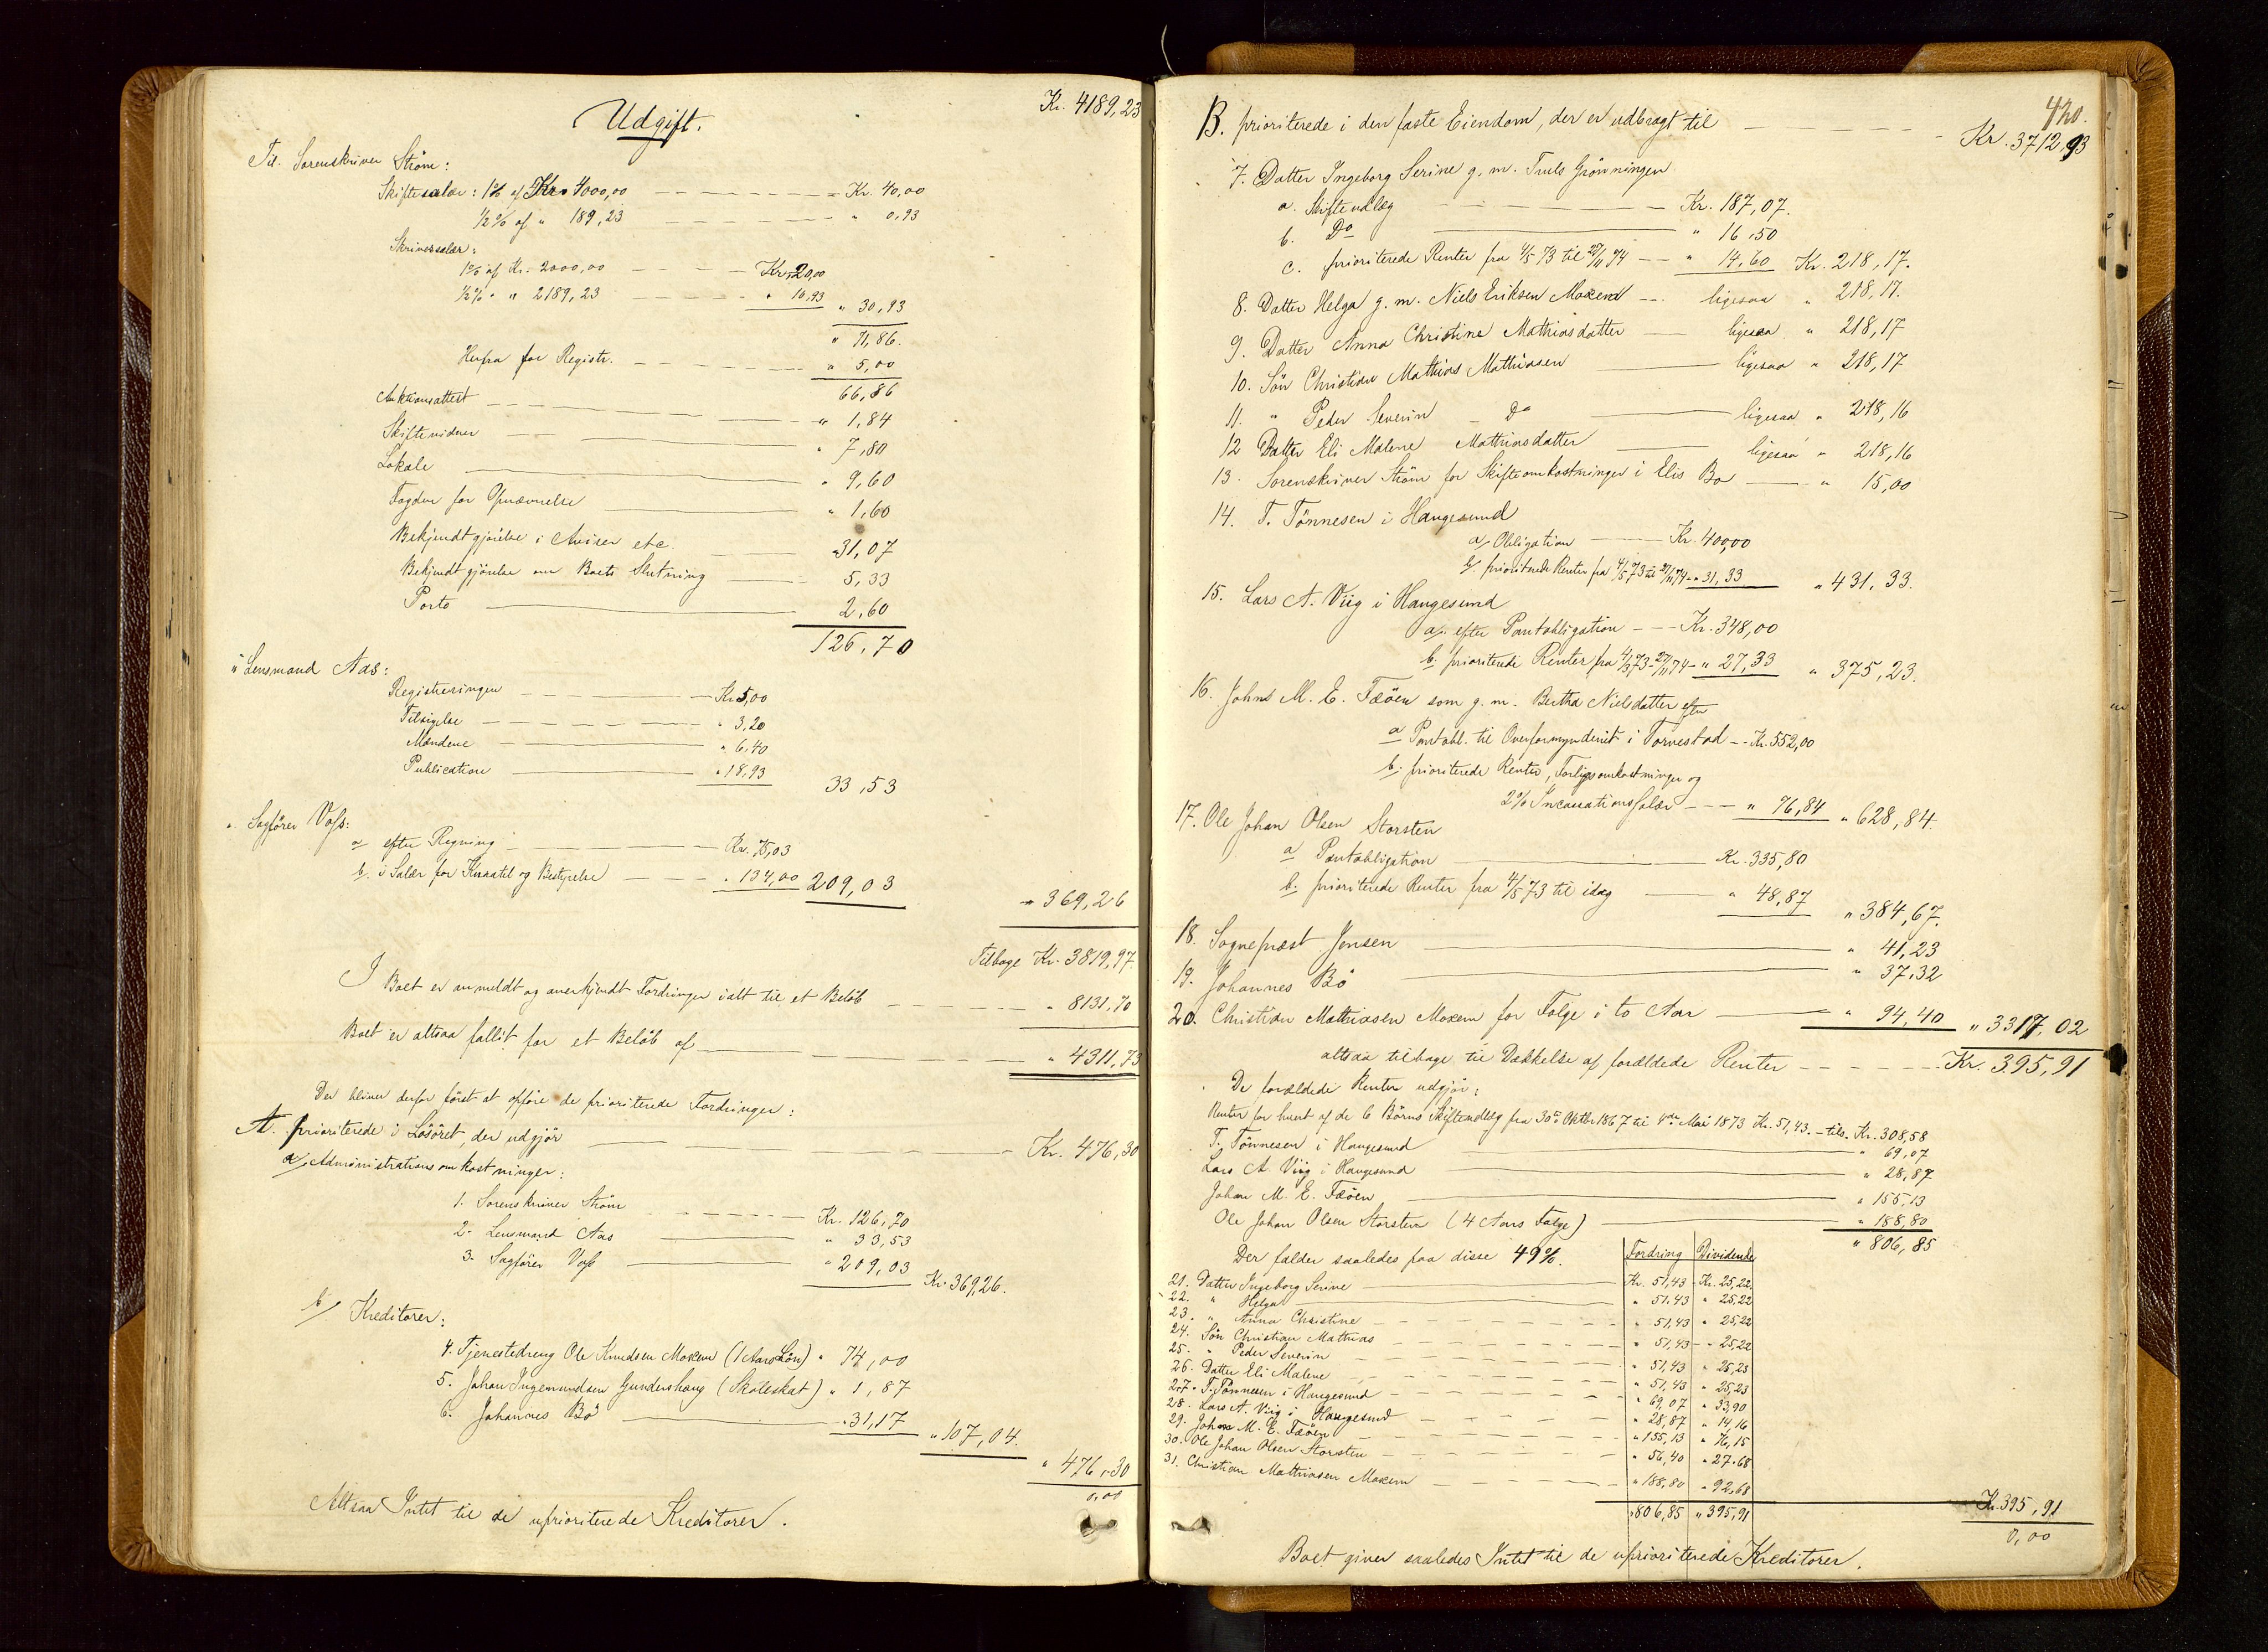 Udgift.
Kr. 4189,23
Til Sorenskriver Ström:
Skiftesalær: 1% af Kr. 4000,00 Kr. 40,00
1/2% af " 189,23 " 0,93
Skriversalær:
1% af Kr. 2000,00 Kr. 20,00
1/2% " " 2189,23 " 10,93 " 30,93
" 71,86.
Herfra for Registr. " 5,00
66,86
Auktionsattest " 1,84
Skiftevidner " 7,80
Lokale " 9,60
Fogden for Opnævnelse " 1,60
Bekjendtgjörelse i Aviser etc. " 31,07
Bekjendtgjörelse om Boets Slutning 5,33
Porto 2,60
126,70
" Lensmand Aas:
Registreringen Kr. 5,00
Tilsigelse " 3,20
Mændene " 6,40
Publication " 18,93 33,53
" Sagförer Voss:
a efter Regning Kr. 75,03
b. i Salær for Kuratel og Bestyrelse " 134,00 209,03
" 369,26
Tilbage Kr. 3819,97.
I Boet er anmeldt og anerkjendt Fordringer ialt til et Belöb " 8131,70
Boet er altsaa fallit for et Belöb af " 4311,73
Der bliver derfor först at opföre de prioriterede Fordringer:
A. prioriterede i Lösöret, der udgjör Kr. 476,30
a/ Administrationsomkostninger:
1. Sorenskriver Ström Kr. 126,70
2. Lensmand Aas " 33,53
3. Sagförer Voss " 209,03 Kr. 369,26.
b/ Kreditorer:
4. Tjenestedreng Ole Knudsen Moxem (1 Aars Lön) " 74,00
5. Johan Ingemundsen Gundershaug (Skoleskat) " 1,87
6. Johannes Bö " 31,17 " 107,04.
" 476,30
0,00
Altsaa Intet til de uprioriterede Kreditorer.
420.
B. prioriterede i den faste Eiendom, der er udbragt til Kr. 3712,93
7. Datter Ingeborg Serine g. m. Truls Grönningen
a. Skifteudlæg Kr. 187,07.
b. Do " 16,50
c. prioriterede Renter fra 4/5 73 til 27/11 74 " 14,60 Kr. 218,17.
8. Datter Helga g. m. Niels Eriksen Moxem ligesaa " 218,17.
9. Datter Anna Christine Mathiasdatter ligesaa " 218,17
10. Sön Christian Mathias Mathiasen ligesaa " 218,17
11. " Peder Severin Do ligesaa " 218,16
12 Datter Eli Malene Mathiasdatter ligesaa " 218,16
13. Sorenskriver Ström for Skifteomkostninger i Elis Bo " 15,00
14. T. Tönnesen i Haugesund
a/ Obligation Kr. 400,00
b/. prioriterede Renter fra 4/5 73 til 27/11 74 " 31,33 " 431,33.
15. Lars A. Viig i Haugesund
a/. efter Pantobligation Kr. 348,00
b. prioriterede Renter fra 4/3 73 - 27/11 74 " 27,33 " 375,23.
16. Johns M. E. Fæöen som g. m. Bertha Nielsdatter efter
a Pantobl. til Overformynderiet i Torvestad Kr. 552,00
b. prioriterede Renter, Forligsomkostninger og
2% Incassationssalær " 76,84 " 628,84.
17. Ole Johan Olsen Storsten
a Pantobligation Kr. 335,80
b. prioriterede Renter fra 4/5 73 til idag " 48,87 " 384,67.
18. Sognepræst Jensen " 41,23
19. Johannes Bö " 37,32
20. Christian Mathiasen Moxem for Folge i to Aar " 94,40 " 3317,02
altsaa tilbage til Dækkelse af forældede Renter Kr. 395,91
De forældede Renter udgjör:
Renter for hvert af de 6 Börns Skifteudlæg fra 30te Oktbr 1867 til 4de Mai 1873 Kr. 51,43. tils. Kr. 308,58
T. Tönnesen i Haugesund " 69,07
Lars A. Viig i Haugesund " 28,87
Johan M. E. Fæöen " 155,13
Ole Johan Olsen Storsten (4 Aars Folge) " 188,80
" 806,85
Der falder saaledes paa disse 49%. Fordring Dividende
21. Datter Ingeborg Serine Kr. 51,43 Kr. 25,22
22. " Helga " 51,43 " 25,22
23. " Anna Christine " 51,43 " 25,22
24. Sön Christian Mathias " 51,43 " 25,22
25. " Peder Severin " 51,43 " 25,23
26. Datter Eli Malene " 51,43 " 25,23
27. T. Tönnesen i Haugesund " 69,07 " 33,90
28. Lars A. Viig i Haugesund " 28,87 " 14,16
29. Johan M. E. Fæöen " 155,13 " 76,15
30. Ole Johan Olsen Storsten " 56,40 " 27,68
31. Christian Mathiasen Moxem " 188,80 " 92,68
" 806,85 " 395,91 Kr. 395,91
0,00
Boet giver saaledes Intet til de uprioriterede Kreditorer.